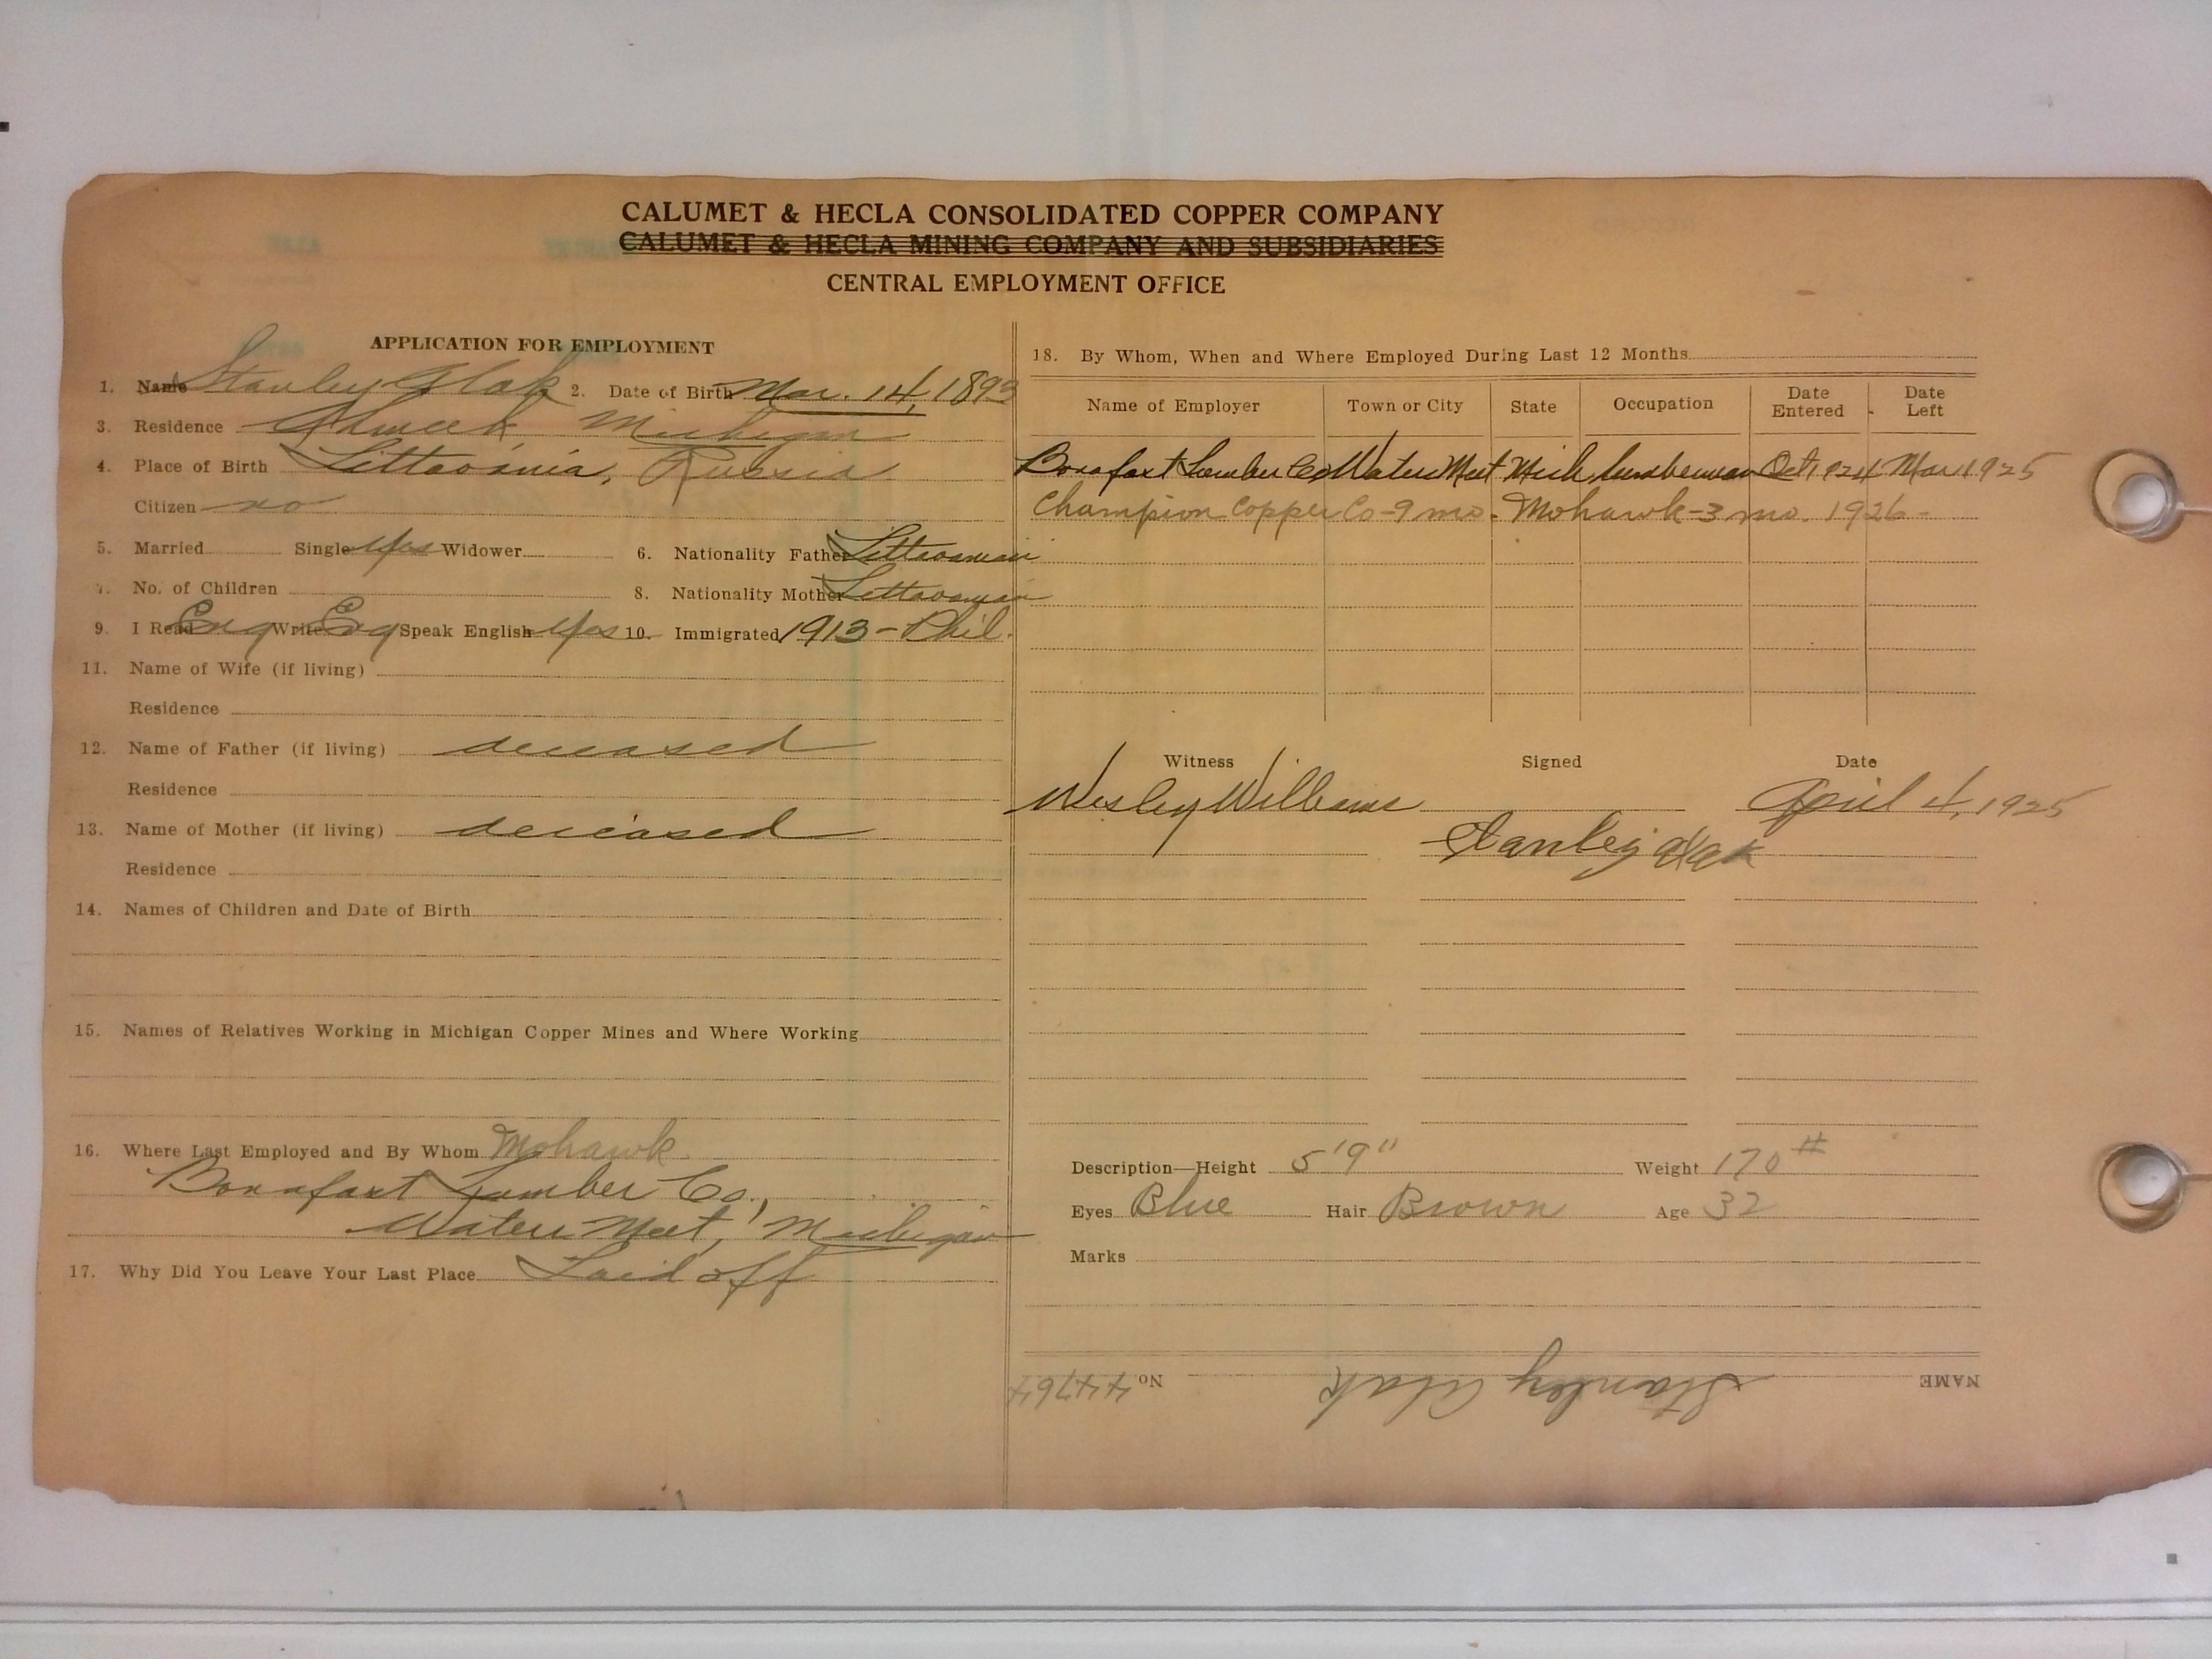 CALUMET & HECLA CONSOLIDATED COPPER COMPANY
CALUMET & HECLA MINING COMPANY AND SUBSIDIARIES
CENTRAL EMPLOYMENT OFFICE
APPLICATION FOR EMPLOYMENT
1. Name Stanley Glak 2. Date of Birth Mar. 14, 1893
3. Residence Ahmeek Michigan
4. Place of Birth Littavania, Russia
Citizen no
5. Married Single Yes Widower 6. Nationality Father Littavanian
7. No. of Children 8. Nationality Mother Littavanian
9. I Read Eng Write Eng Speak English Yes 10. Immigrated 1913 - Phil.
11. Name of Wife (if living)
Residence
12. Name of Father (if living) deceased
Residence
13. Name of Mother (if living) deceased
Residence
14. Names of Children and Date of Birth
15. Names of Relatives Working in Michigan Copper Mines and Where Working
16. Where Last Employed and By Whom Mohawk.
Bonafast Lumber Co.,
Water Meet, Michigan
17. Why Did You Leave Your Last Place Laid off
18. By Whom, When and Where Employed During Last 12 Months
Name of Employer Town or City State Occupation Date Entered Date Left
Bonafast Lumber Co Water Meet Mich lumberman Oct, 1924 Mar. 1925
Champion Copper Co - 9 mo. Mohawk - 3 mo. 1926 -
Witness Signed Date
Wesley Williams April 4, 1925
Stanley Glak
Description—Height 5'9" Weight 170 #
Eyes Blue Hair Brown Age 32
Marks
NAME Stanley Glak No. 44764